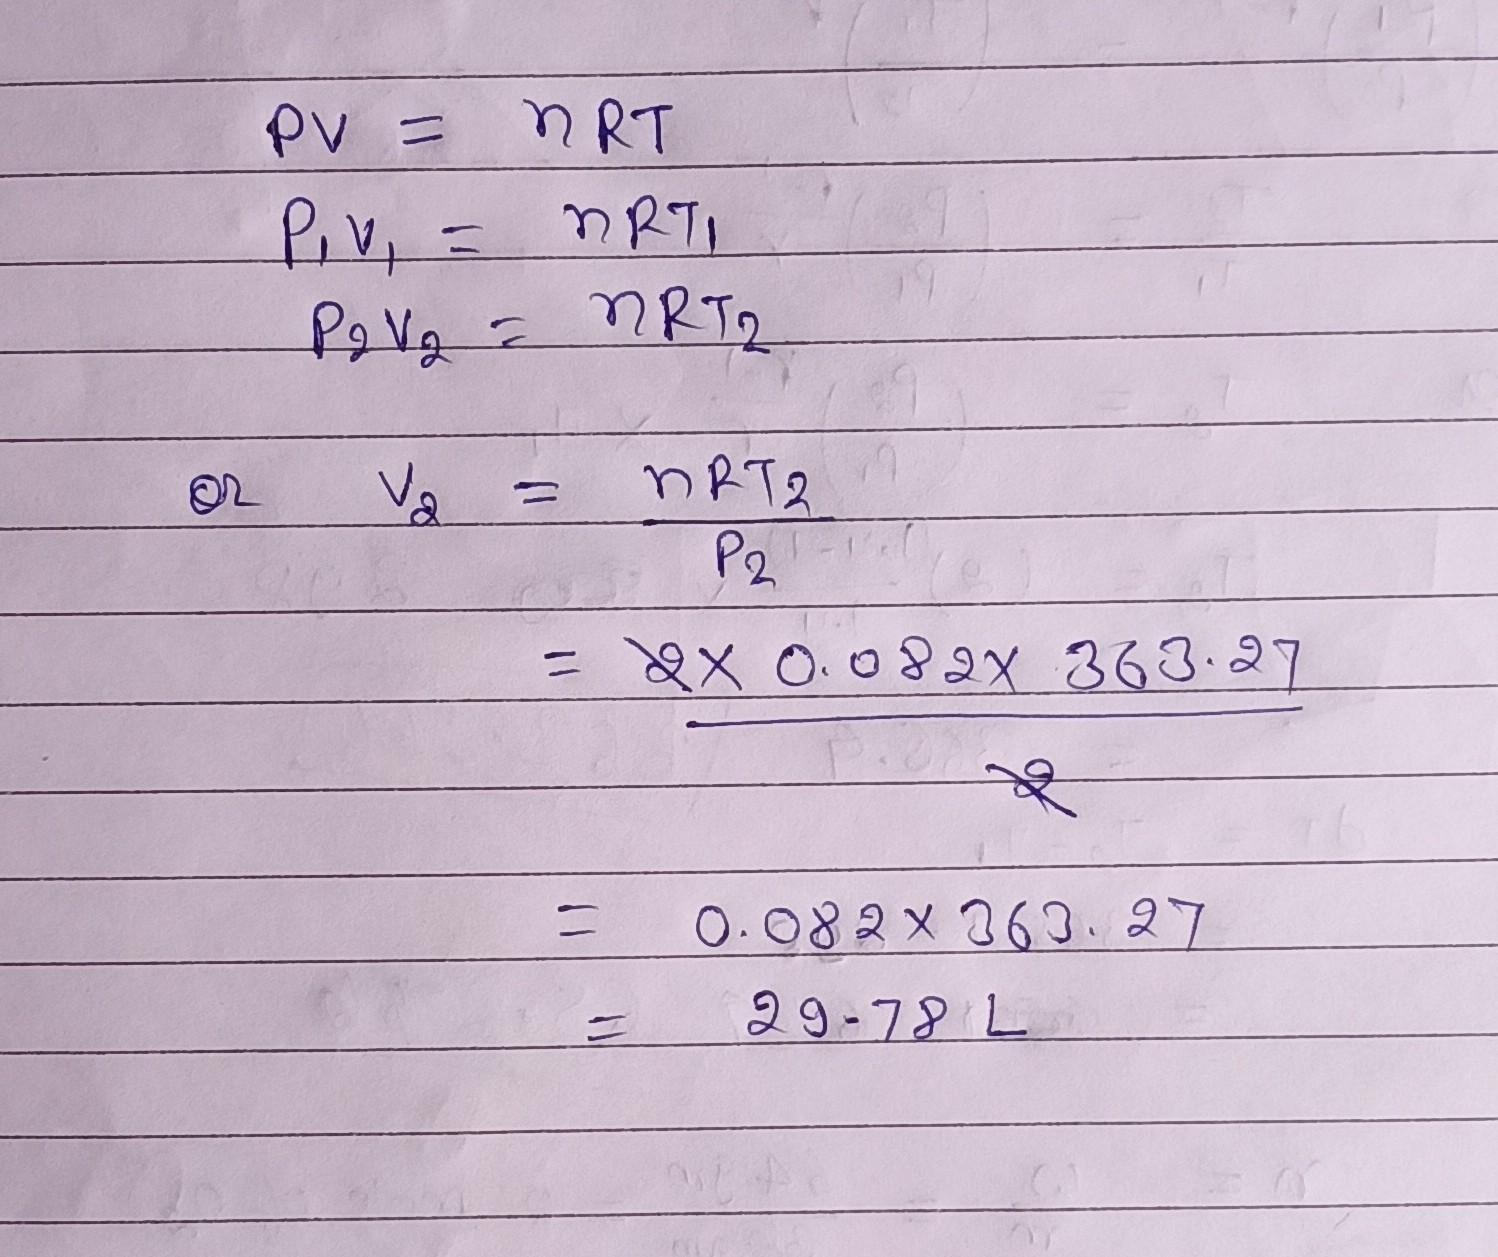 PV = nRT
P₁V₁ = nRT₁
P₂V₂ = nRT₂
or V₂ = nRT₂
P₂
= 2 x 0.082 x 363.27
2
= 0.082 x 363.27
= 29.78 L